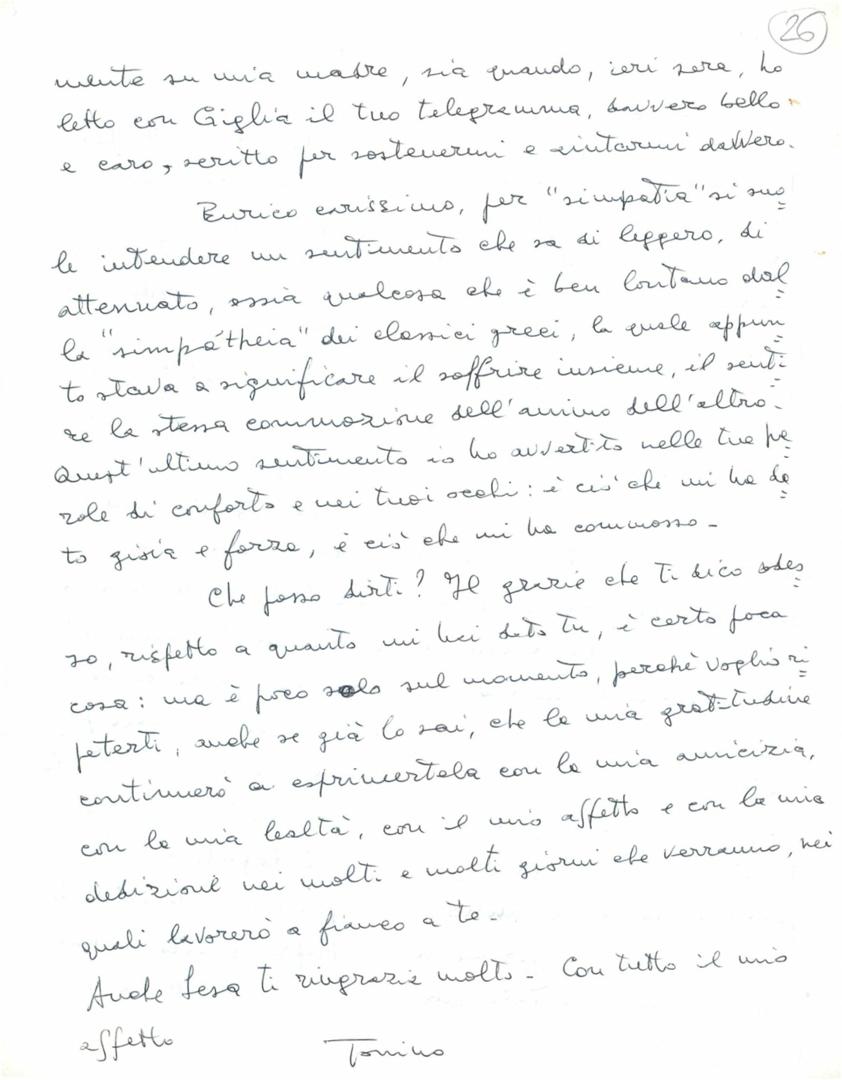 26
mente su mia madre, sia quando, ieri sera, ho
letto con Giglia il tuo telegramma, davvero bello
e caro, scritto per sostenermi e aiutarmi davvero.
Enrico carissimo, per "simpatia" si suo
le intendere un sentimento che sa di leggero, di
attenuato, ossia qualcosa che è ben lontano dal
la "simpátheia" dei classici greci, la quale appun
to stava a significare il soffrire insieme, il senti
re la stessa commozione dell'animo dell'altro.
Quest'ultimo sentimento io ho avvertito nelle tue pa
role di conforto e nei tuoi occhi: è ciò che mi ha da
to gioia e forza, è ciò che mi ha commosso -
Che posso dirti? Il grazie che ti dico ades
so, rispetto a quanto mi hai dato tu, è certo poca
cosa: ma è poco solo sul momento, perchè voglio ri
peterti, anche se già lo sai, che la mia gratitudine
continuerò a esprimertela con la mia amicizia,
con la mia lealtà, con il mio affetto e con la mia
dedizione nei molti e molti giorni che verranno, nei
quali lavorerò a fianco a te -
Anche ti ringrazia molto - Con tutto il mio
affetto
Tonino